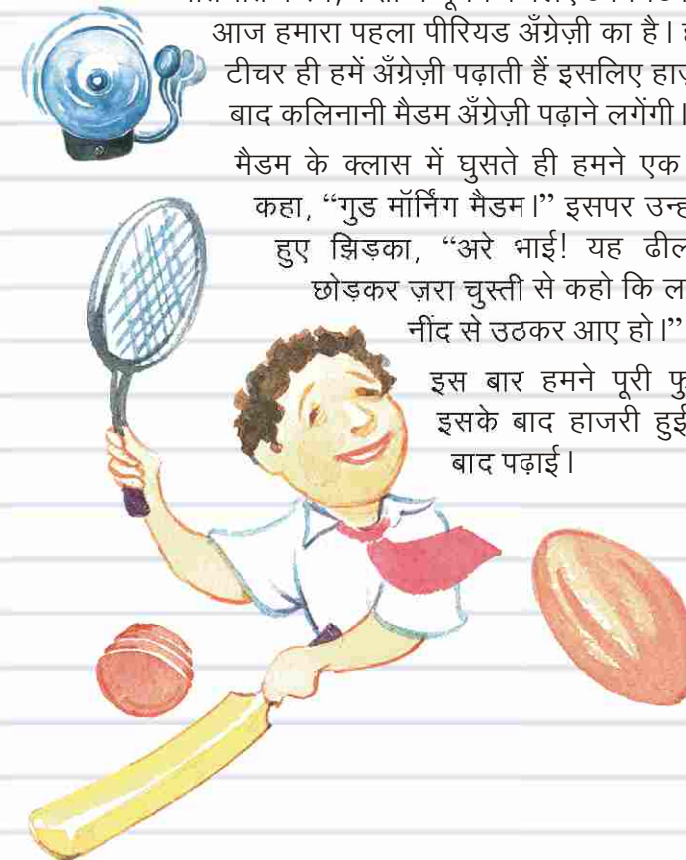 आज हमारा पहला पीरियड अँग्रेज़ी का है।
टीचर ही हमें अँग्रेज़ी पढ़ाती हैं इसलिए
बाद कलिनानी मैडम अँग्रेज़ी पढ़ाने लगेंगी।
मैडम के क्लास में घुसते ही हमने एक
कहा, “गुड मॉर्निंग मैडम।” इसपर
हुए झिड़का, “अरे भाई! यह
छोड़कर ज़रा चुस्ती से कहो कि
नींद से उठकर आए हो।”
इस बार हमने पूरी
इसके बाद हाजरी हुई
बाद पढ़ाई।